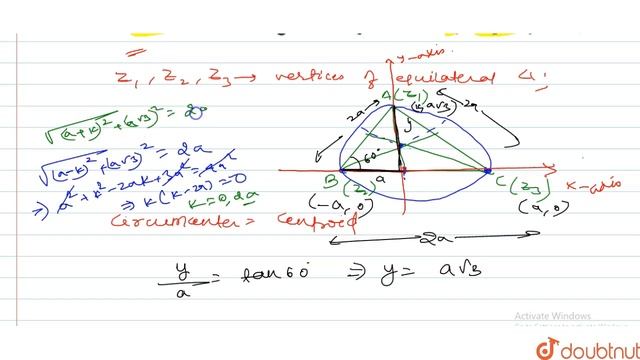 Z₁, Z₂, Z₃ → vertices of equilateral Δ:
y-axis
A (Z₁)
(k, a√3)
2a
2a
y
60°
a
B (Z₂)
C (Z₃)
x-axis
(-a, 0)
(a, 0)
2a
√(a+k)²+(a√3)² = 2a
√(a-k)²+(a√3)² = 2a
⇒ a²+k²-2ak+3a² = 4a²
⇒ k(k-2a)=0
k=0, 2a
Circumcenter = Centroid
y/a = tan60° ⇒ y = a√3
Activate Windows
doubtnut